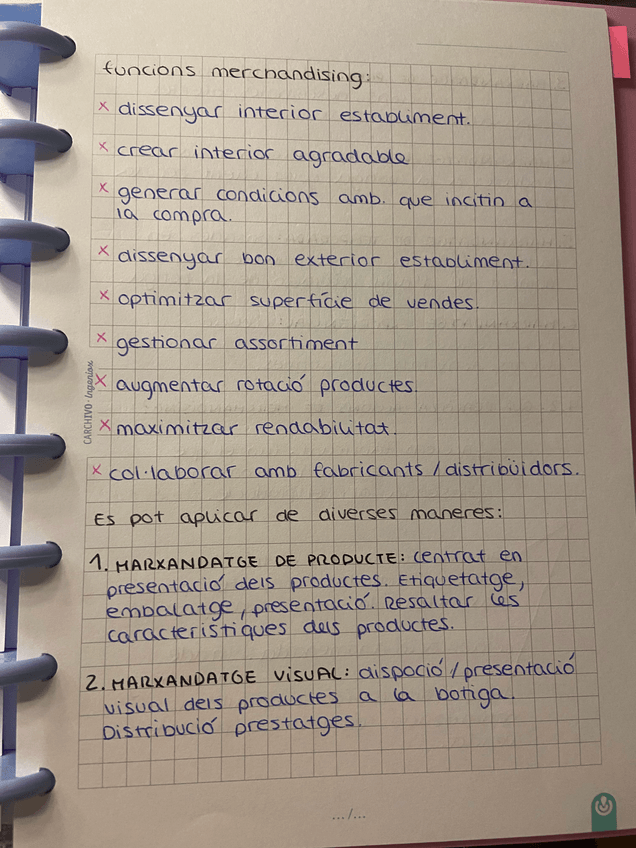 funcions merchandising:
x dissenyar interior establiment.
x crear interior agradable
x generar condicions amb. que incitin a
la compra.
x dissenyar bon exterior establiment.
x optimitzar superfície de vendes.
x gestionar assortiment
x augmentar rotació productes.
x maximitzar rendabilitat.
x col·laborar amb fabricants / distribüidors.
Es pot aplicar de diverses maneres:
1. MARXANDATGE DE PRODUCTE: centrat en
presentació dels productes. Etiquetatge,
embalatge, presentació. Resaltar les
característiques dels productes.
2. MARXANDATGE VISUAL: dispoció / presentació
visual dels productes a la botiga.
Distribució prestatges.
CARCHIVO·Ingeniox
.../...